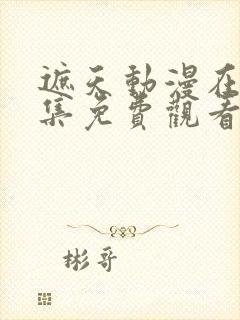 遮天動漫在
集免費觀看
彬哥